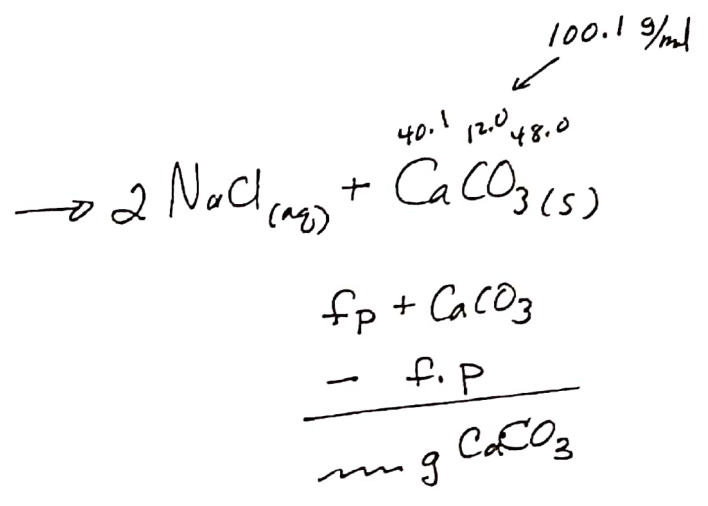 100.1 g/mol
40.1 12.0 48.0
→ 2 NaCl(aq) + CaCO3(s)
fp + CaCO3
- f.p
g CaCO3